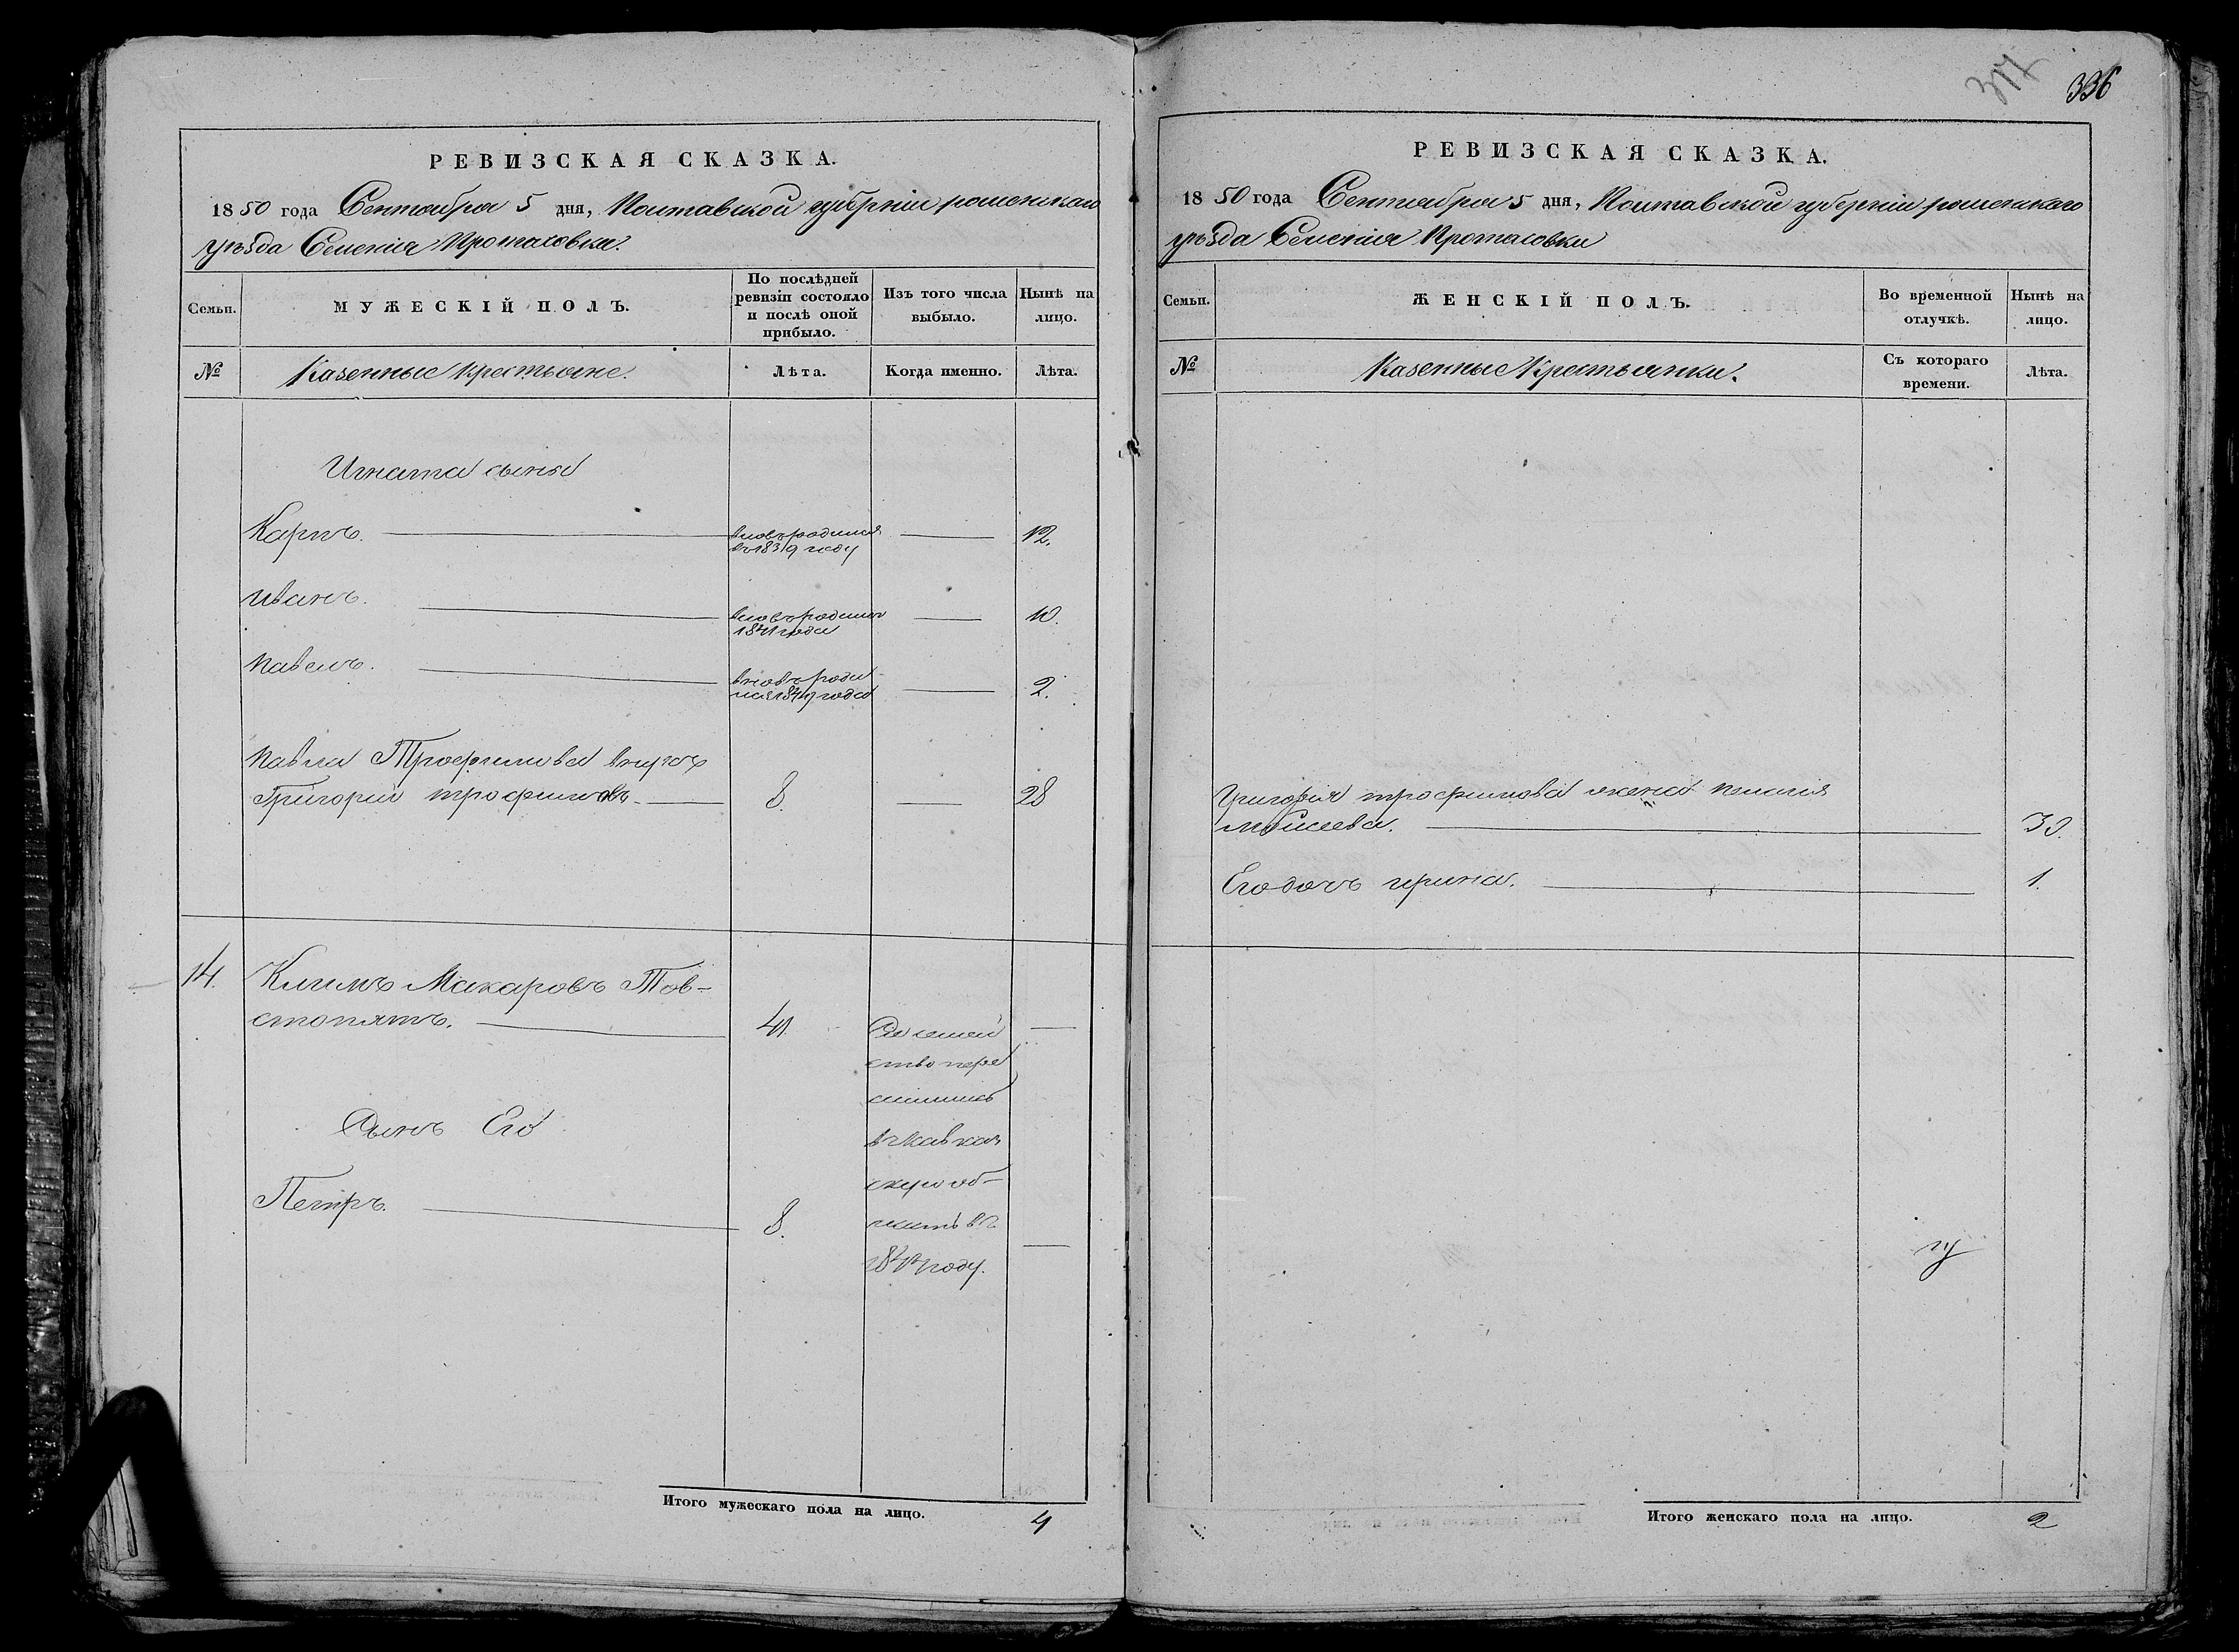 РЕВИЗСКАЯ СКАЗКА.
1850 года Сентября 5 дня, Полтавской губерніи роменскаго
уѣзда Селенія Протасовки.
Семьи.
МУЖЕСКІЙ ПОЛЪ.
По послѣдней
ревизіи состояло
и послѣ оной
прибыло.
Изъ того числа
выбыло.
Нынѣ на
лицо.
№
Казенные Крестьяне.
Лѣта.
Когда именно.
Лѣта.
Игната сыны
Карпъ.
вновъродился
въ 1839 году
12.
иванъ.
вновъродилс
1841 года
10.
павелъ.
вновъ роди
лся 1849 года
2.
павла Трофимова внукъ
Григорій трофимовъ
8.
28
14.
Климъ Макаровъ Тов-
стопятъ.
41.
Сосемей
ство пере
силились
в Кавказ
скую об-
ласть въ
1847 году.
Сынъ Его
Петръ.
8.
Итого мужескаго пола на лицо.
4
317
336
РЕВИЗСКАЯ СКАЗКА.
1850 года Сентября 5 дня, Полтавской губерніи роменскаго
уѣзда Селенія Протасовки
Семьи.
ЖЕНСКІЙ ПОЛЪ.
Во временной
отлучкѣ.
Нынѣ на
лицо.
№
Казенные Крестьянки.
Съ котораго
времени.
Лѣта.
Григорія трофимова жена пелагія
мойсеева.
30.
Его дочь ирина.
1.
Итого женскаго пола на лицо.
2